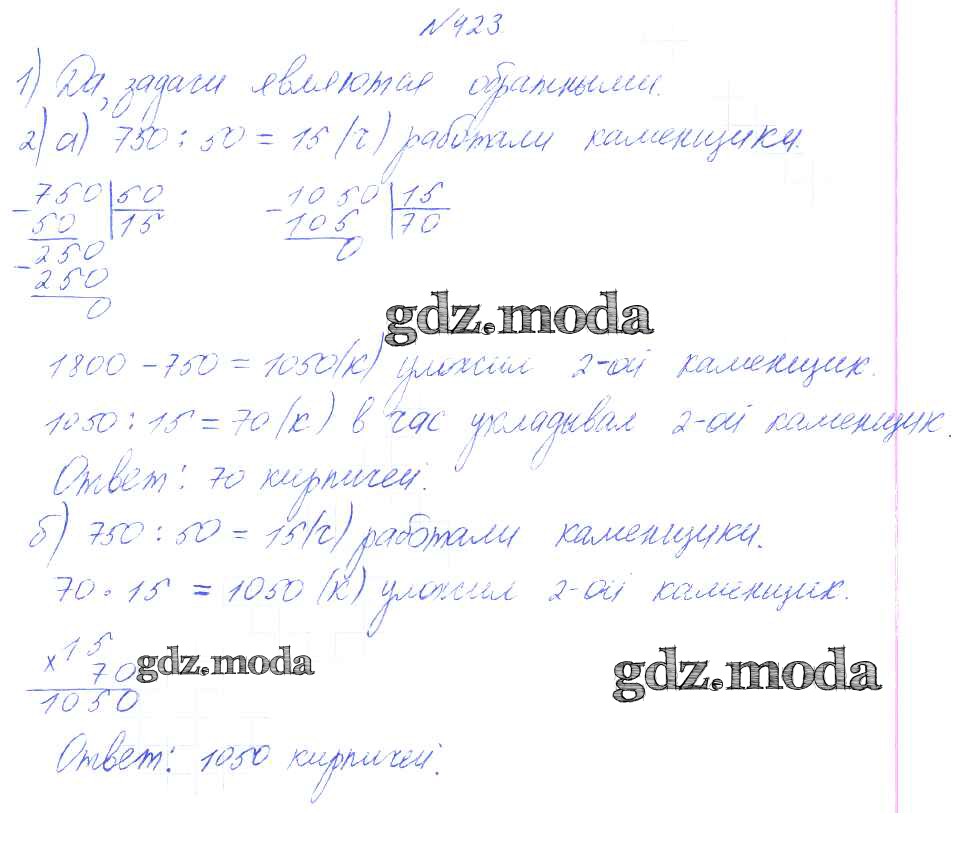 №423
1) Да, задачи являются обратными.
2) а) 750 : 50 = 15 (ч) работали каменщики.
- 750 | 50
50 | 15
- 250
250
0
- 1050 | 15
105 | 70
0
gdz.moda
1800 - 750 = 1050 (к) уложил 2-ой каменщик.
1050 : 15 = 70 (к) в час укладывал 2-ой каменщик.
Ответ: 70 кирпичей.
б) 750 : 50 = 15 (ч) работали каменщики.
70 · 15 = 1050 (к) уложил 2-ой каменщик.
x 15
70
1050
gdz.moda
gdz.moda
Ответ: 1050 кирпичей.